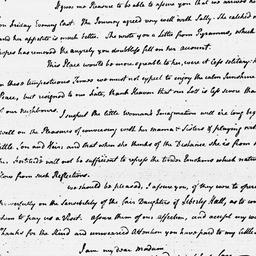 gives me Pleasure to be able to assure you that we arrived he
on Friday Evening last. The Journey agreed very well with Sally. She catched n
and her appetite is much better. She wrote you a Letter from Pyramus, which
hopes has removed the anxiety you doubtless felt on her account.
This Place wants to be more agreable to her, were it less solitary: b
in these tempestuous Times we must not expect to enjoy the calm Sunshine
Peace, but resigned to our Lot, thank Heaven that our Lot is less severe than
of our Neighbours.
I suspect the little Woman's Imagination will ere long begi
will on the Pleasures of conversing with her Mama & Sisters & playing with
little Son and Heir: and that when she thinks of the Distance she is from
her Fortitude will not be sufficient to repress the tender Emotions which natu
from such Reflections.
We should be pleased, I assure you, if they were to opera
so powerfully on the Sensibility of the Fair Daughters of Liberty Hall, as to con
them to pay us a Visit. Assure them of our Affection, and accept my wa
Thanks for the kind and unwearied Attention you have paid to my little
I am my dear Madam